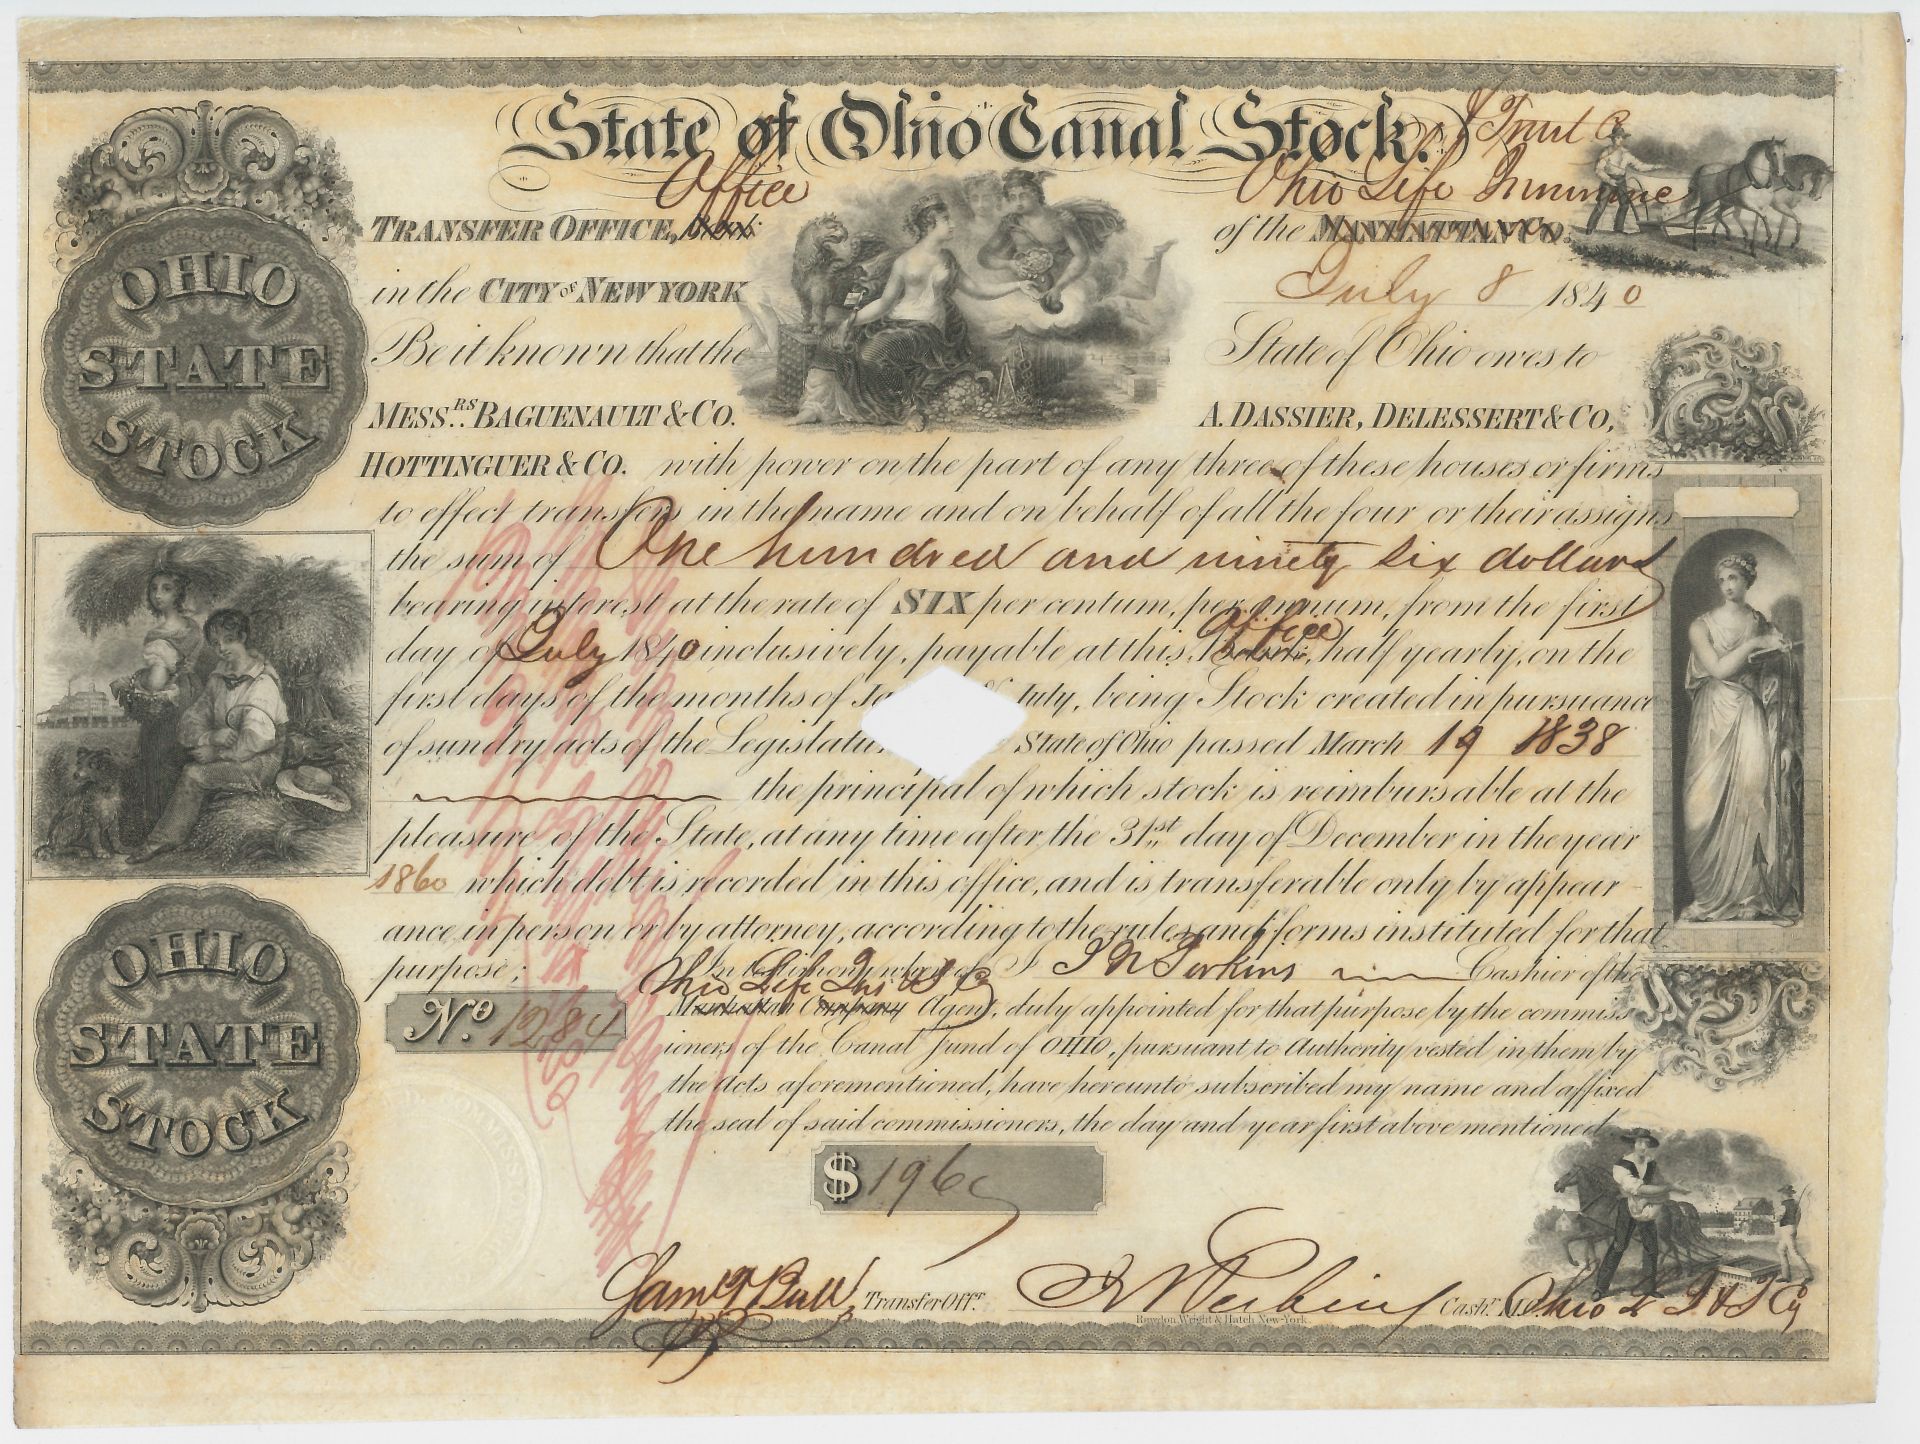 State of Ohio Canal Stock.
& Trust Co
Office Ohio Life Insurance
TRANSFER OFFICE, of the MANHATTAN CO.
in the CITY of NEW YORK July 8 1840
Be it known that the State of Ohio owes to
MESS.RS BAGUENAULT & CO. A. DASSIER, DELESSERT & CO,
HOTTINGUER & CO. with power on the part of any three of these houses or firms
to effect transfers in the name and on behalf of all the four or their assigns
the sum of One hundred and ninety six dollars
bearing interest at the rate of SIX per centum, per annum, from the first
day of July 1840 inclusively, payable at this, Office, half yearly, on the
first days of the months of Ja & July, being Stock created in pursuance
of sundry acts of the Legislatu State of Ohio passed March 19 1838
the principal of which stock is reimbursable at the
pleasure of the State, at any time after the 31st day of December in the year
1860 which debt is recorded in this office, and is transferable only by appear-
ance in person or by attorney, according to the rules and forms instituted for that
purpose; In testimony whereof I T N Perkins Cashier of the
Ohio Life Ins & T Co
Manhattan Company Agent, duly appointed for that purpose by the commiss
ioners of the Canal fund of OHIO, pursuant to Authority vested in them by
the Acts aforementioned, have hereunto subscribed my name and affixed
the seal of said commissioners, the day and year first above mentioned
No. 1284
$196
Transfer Offr. Perkins Cashr. Ohio L I & T Co
Rawdon Wright & Hatch New-York.
OHIO
STATE
STOCK
OHIO
STATE
STOCK